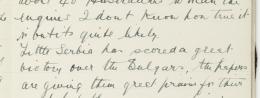 over 40 Australians to man the
engines I dont know how true it
is but its quite likely
Little Serbia has scored a great
victory over the Bulgars, the papers
are giving them great praise for their